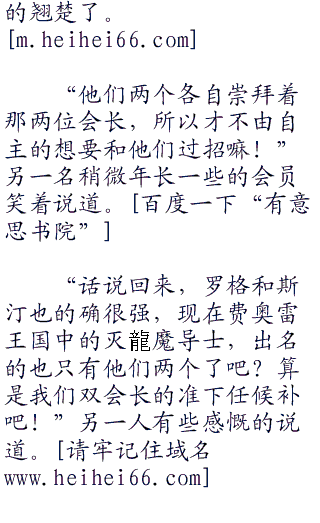 的翘楚了。
[m.heihei66.com]
“他们两个各自崇拜着
那两位会长，所以才不由自
主的想要和他们过招嘛！”
另一名稍微年长一些的会员
笑着说道。[百度一下“有意
思书院”]
“话说回来，罗格和斯
汀也的确很强，现在费奥雷
王国中的灭龍魔导士，出名
的也只有他们两个了吧？算
是我们双会长的准下任候补
吧！”另一人有些感慨的说
道。[请牢记住域名
www.heihei66.com]